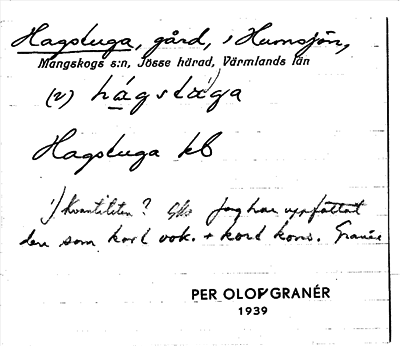 Hagstuga, gård, i Humsjön,
Mangskogs s:n, Jösse härad, Värmlands län
(v) hágstàga
Hagstuga kb
1) Kvantiteten? Jag har uppfattat
den som kort vok. + kort kons. Granér
PER OLOF GRANÉR
1939